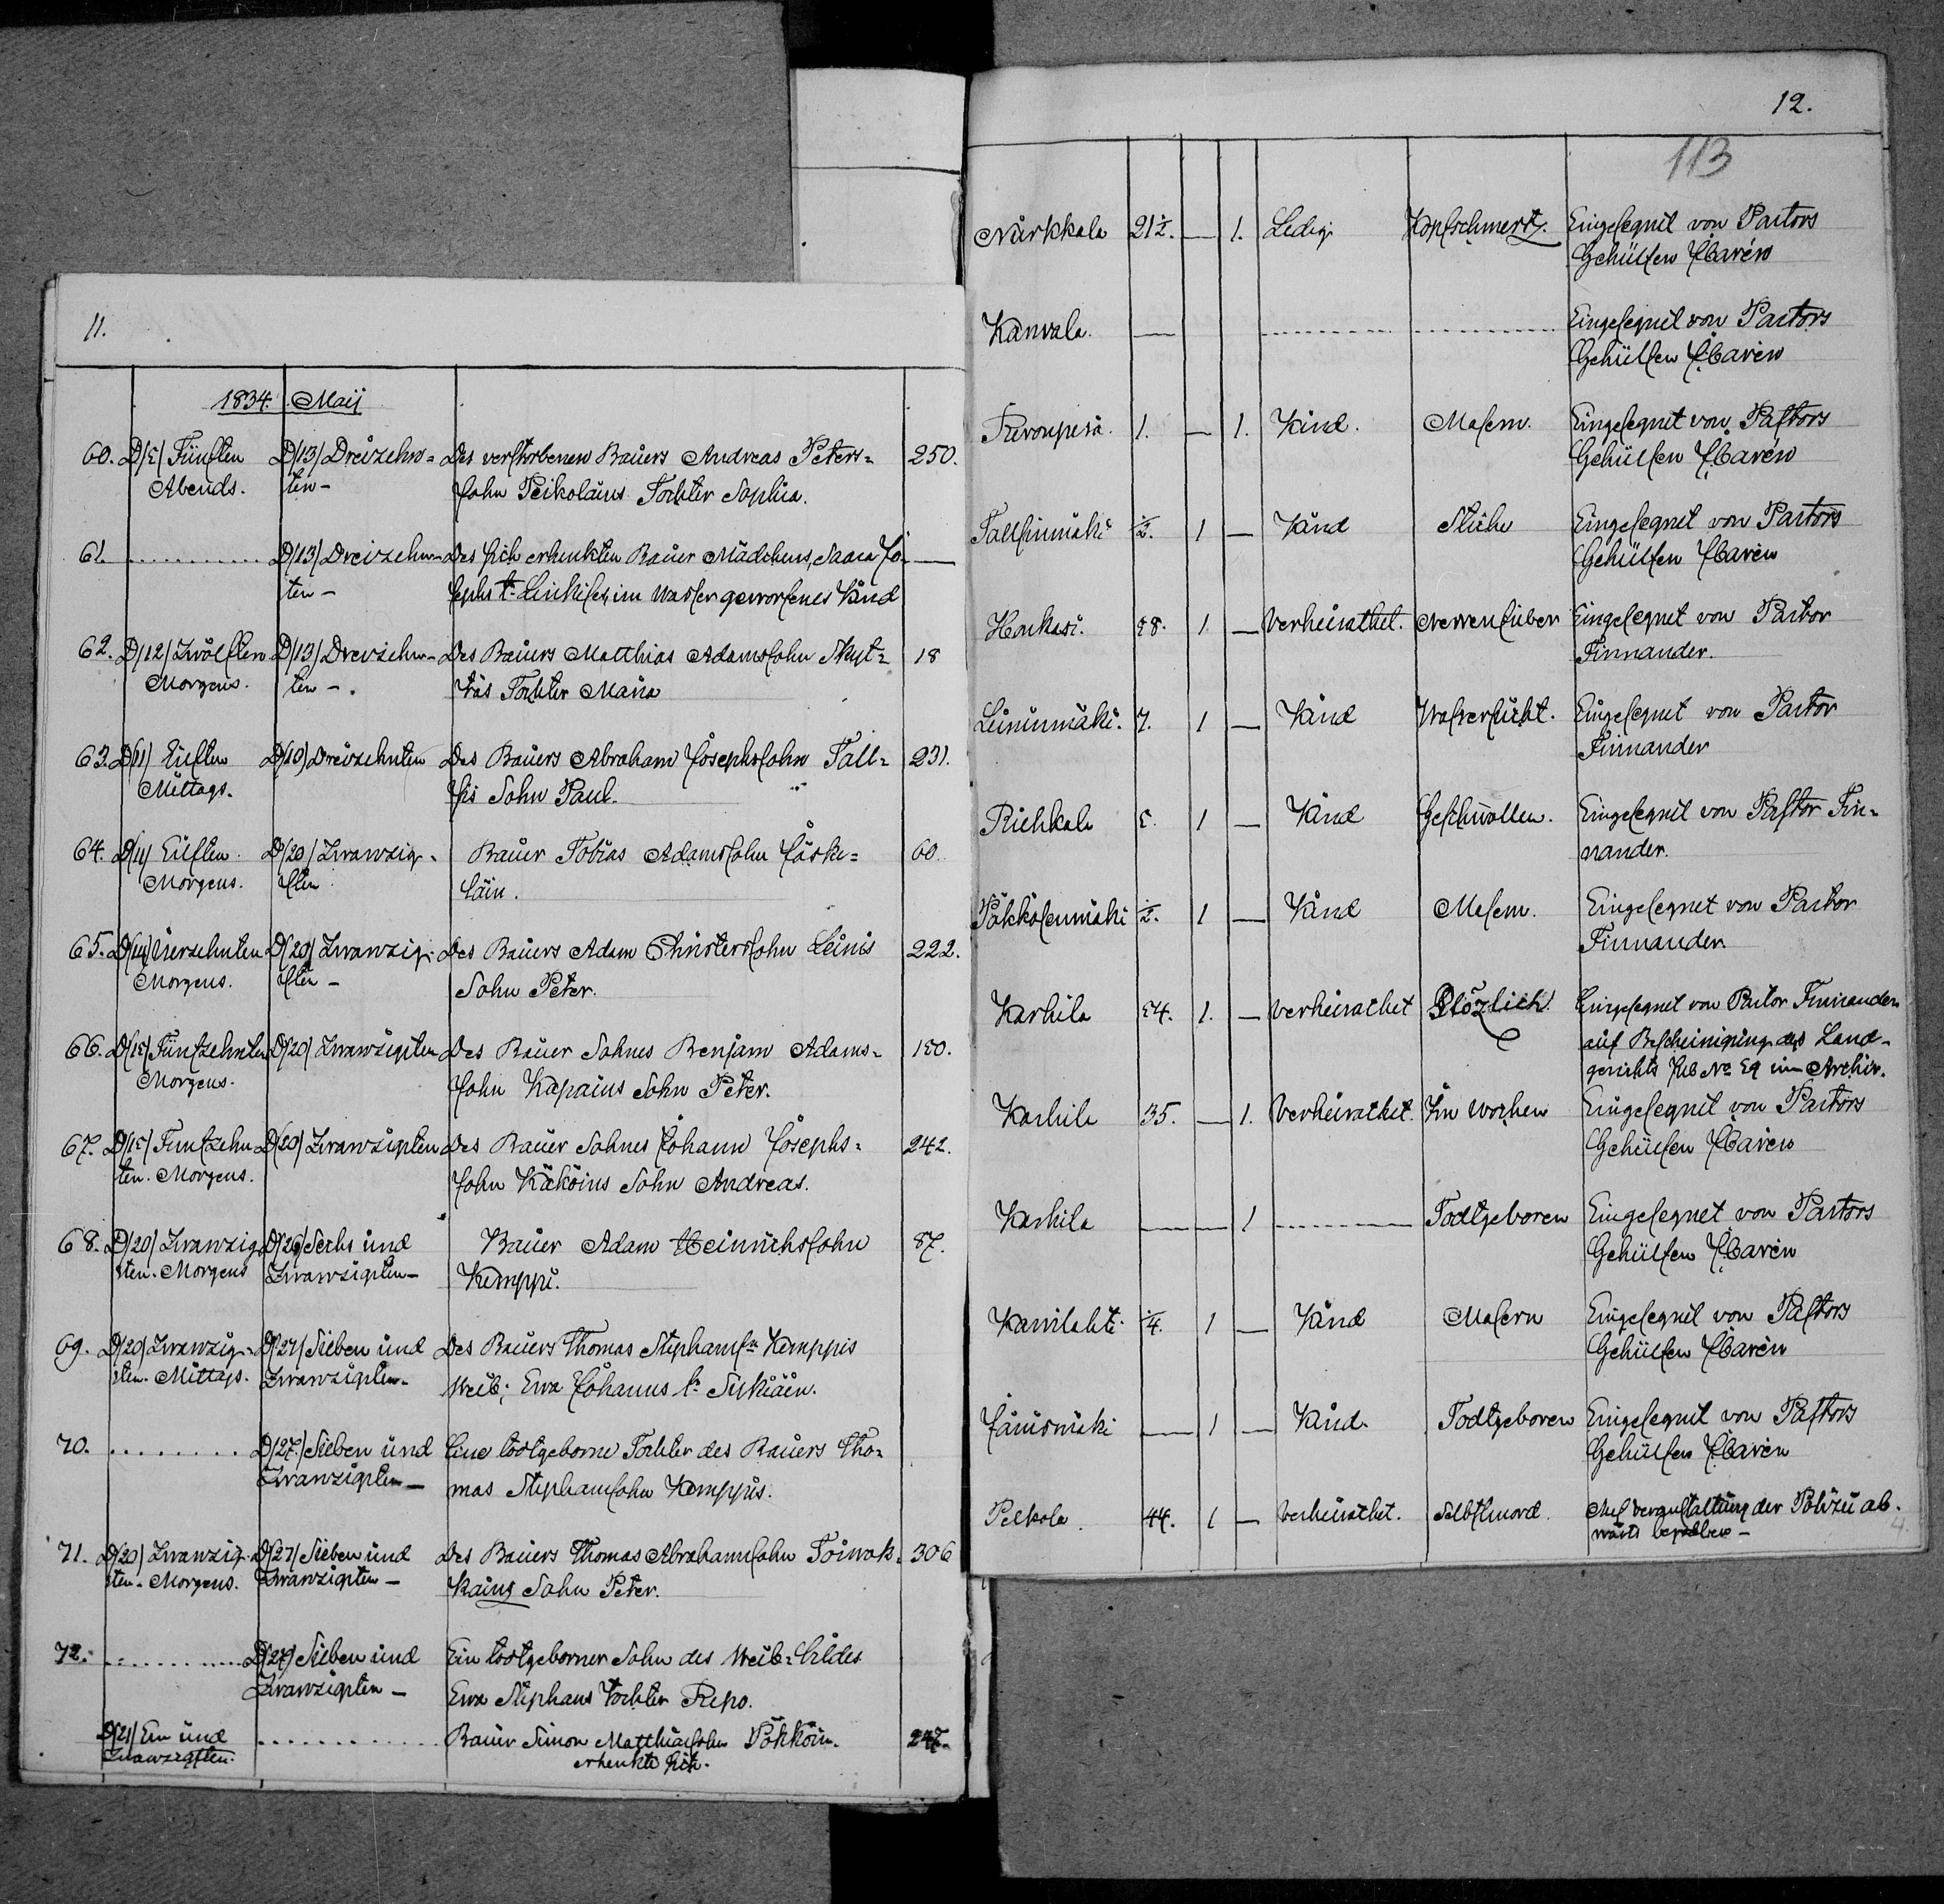 11.
1834. Maij
60. D/5/ Fünften D/13/ Dreizehn= Des verstorbenen Bauers Andreas Peters= 250.
Abends. ten- sohn Peikolains Tochter Sophia.
61. D/13/ Dreizehn- Des sich erhenkten Bauer Mädchens, Saara Jo- —
ten- sephs t: im Wasser geworfenes Kind
62. D/12/ Zwölften D/13/ Dreizehn- Des Bauers Matthias Adamssohn Skyt= 18
Morgens. ten-. täs Tochter Maria
63. D/11/ Eilften D/13/ Dreizehnten Des Bauers Abraham Josephssohn Tall= 231.
Mittags. sis Sohn Paul.
64. D/11/ Eilften D/20/ Zwanzig- Bauer Tobias Adamssohn Jäske= 60.
Morgens. sten läin.
65. D/14/ Vierzehnten D/20/ Zwanzig- Des Bauers Adam Christerssohn Leinis 222.
Morgens. sten - Sohn Peter.
66. D/15/ Fünfzehnten D/20/ Zwanzigsten Des Bauer Sohnes Benjam Adams= 150.
Morgens. sohn Kapains Sohn Peter.
67. D/15/ Funfzehn D/20/ Zwanzigsten Des Bauer Sohnes Johann Josephs= 242.
ten. Morgens. sohn Käköins Sohn Andreas.
68. D/20/ Zwanzig D/26/ Sechs und Bauer Adam Heinrichssohn 87.
sten. Morgens Zwanzigsten- Kemppi.
69. D/20/ Zwanzig- D/27/ Sieben und Des Bauers Thomas Stephanssn Kemppis
sten. Mittags. Zwanzigsten- Weib; Ewa Johanns t:
70. D/27/ Sieben und Eine todtgeborne Tochter des Bauers Tho=
Zwanzigsten- mas Stephanssohn Kemppis.
71. D/20/ Zwanzig- D/27/ Sieben und Des Bauers Thomas Abrahamssohn Toiwak- 306
sten. Morgens. Zwanzigsten- kains Sohn Peter.
72. D/27/ Sieben und Ein todtgeborner Sohn des Weib=bildes
Zwanzigsten- Ewa Stephans Tochter Repo.
D/21/ Ein und Bauer Simon Matthiassohn Pökköin. 247.
Zwanzigsten. erhenkte sich.
12.
113
Närkkälä 21½. — 1. Ledig Kopfschmertz. Eingesegnet von Pastors
Gehülfen
Kanvala. — Eingesegnet von Pastors
Gehülfen
1. — 1. Kind. Masern. Eingesegnet von Pastors
Gehülfen
Tallsinmäki ½. 1 — Kind Stiche Eingesegnet von Pastors
Gehülfen
58. 1 — Verheirathet. Nervenfieber Eingesegnet von Pastor
Finnander.
Leininmäki. 7. 1 — Kind Wassersucht. Eingesegnet von Pastor
Finnander
5. 1 — Kind Geschwollen. Eingesegnet von Pastor Fin-
nander.
½. 1 — Kind Masern. Eingesegnet von Pastor
Finnander.
Karhila 54. 1. — Verheirathet Plözlich. Eingesegnet von Pastor Finnander
auf Bescheinigung des Land-
gerichts sub No 59 im Archiv.
Karhila 35. — 1. Verheirathet In Wochen Eingesegnet von Pastors
Gehülfen
Karhila — — 1 Todtgeboren Eingesegnet von Pastors
Gehülfen
¼. 1 — Kind Masern Eingesegnet von Pastors
Gehülfen
— 1 — Kind. Todtgeboren Eingesegnet von Pastors
Gehülfen
Peikola. 44. 1 — Verheirathet. Selbstmord. Auf Veranstaltung der Polizei ab-
wärts begraben-